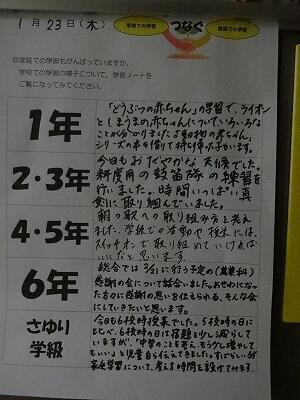 1月23日(木)
学校での学習
つなぐ
家庭での学習
◎家庭での学習もがんばっていますか。
学校での学習の様子について、学習ノートを
ご覧になってみてください。
1年
「どうぶつの赤ちゃん」の学習で、ライオン
としまうまの赤ちゃんについていろいろな
ことが分かりました。動物の赤ちゃん
シリーズの本を借りて持ち帰る子がいます。
2・3年
今日もおだやかな天候でした。
鼓笛隊の練習を
行いました。時間いっぱい真
剣に取り組んでいました。
4・5年
朝の歌への取り組み方も考え
ました。学校での活動や授業には
スイッチオンで取り組めていければ
いいなと思います。
6年
総合では3/11に行う予定の(授業科)
感謝の会について話合いました。お世話になっ
た方々に感謝の思いを伝えられる、そんな会
にしていきたいと思います。
さゆり
学級
今日も6校時授業でした。5校時の日に
比べ、6校時の日は宿題を少し減らして
いますが、「中学のことを考え、もう少し増やして
もいい」と児童自ら伝えてきました。すばらしい
家庭学習について、考える時間を設けてみます。